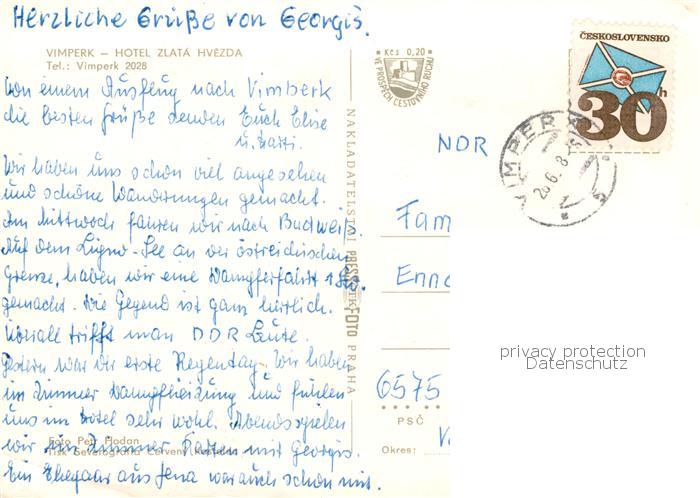 Herzliche Grüße von Georgis.
VIMPERK – HOTEL ZLATÁ HVĚZDA
Tel.: Vimperk 2028
Von einem Ausflug nach Vimberk
die besten Grüße senden Euch Elise
u.
Wir haben uns schon viel angesehen
und schöne Wanderungen gemacht.
Am Mittwoch fahren wir nach Budweis.
Auf dem Lipno-See an der östreichischen
Grenze, haben wir eine Dampferfahrt
gemacht. Die Gegend ist ganz herrlich.
Überall trifft man DDR Leute.
Gestern war der erste Regentag. Wir haben
im Zimmer Dampfheizung und fühlen
uns im Hotel sehr wohl. Abends spielen
wir im Zimmer Karten mit Georgis.
Foto Petr Hodan
Tisk Severografia Červený Kostelec
Ein Ehepaar aus Jena war auch schon mit.
NAKLADATELSTVÍ PRESSFOTO PRAHA
Kčs 0,20
VE PROSPĚCH CESTOVNÍHO RUCHU
ČESKOSLOVENSKO
30h
VIMPERK
26.6.8
NDR
Fam
Enn
6575
PSČ
Okres:
privacy protection
Datenschutz